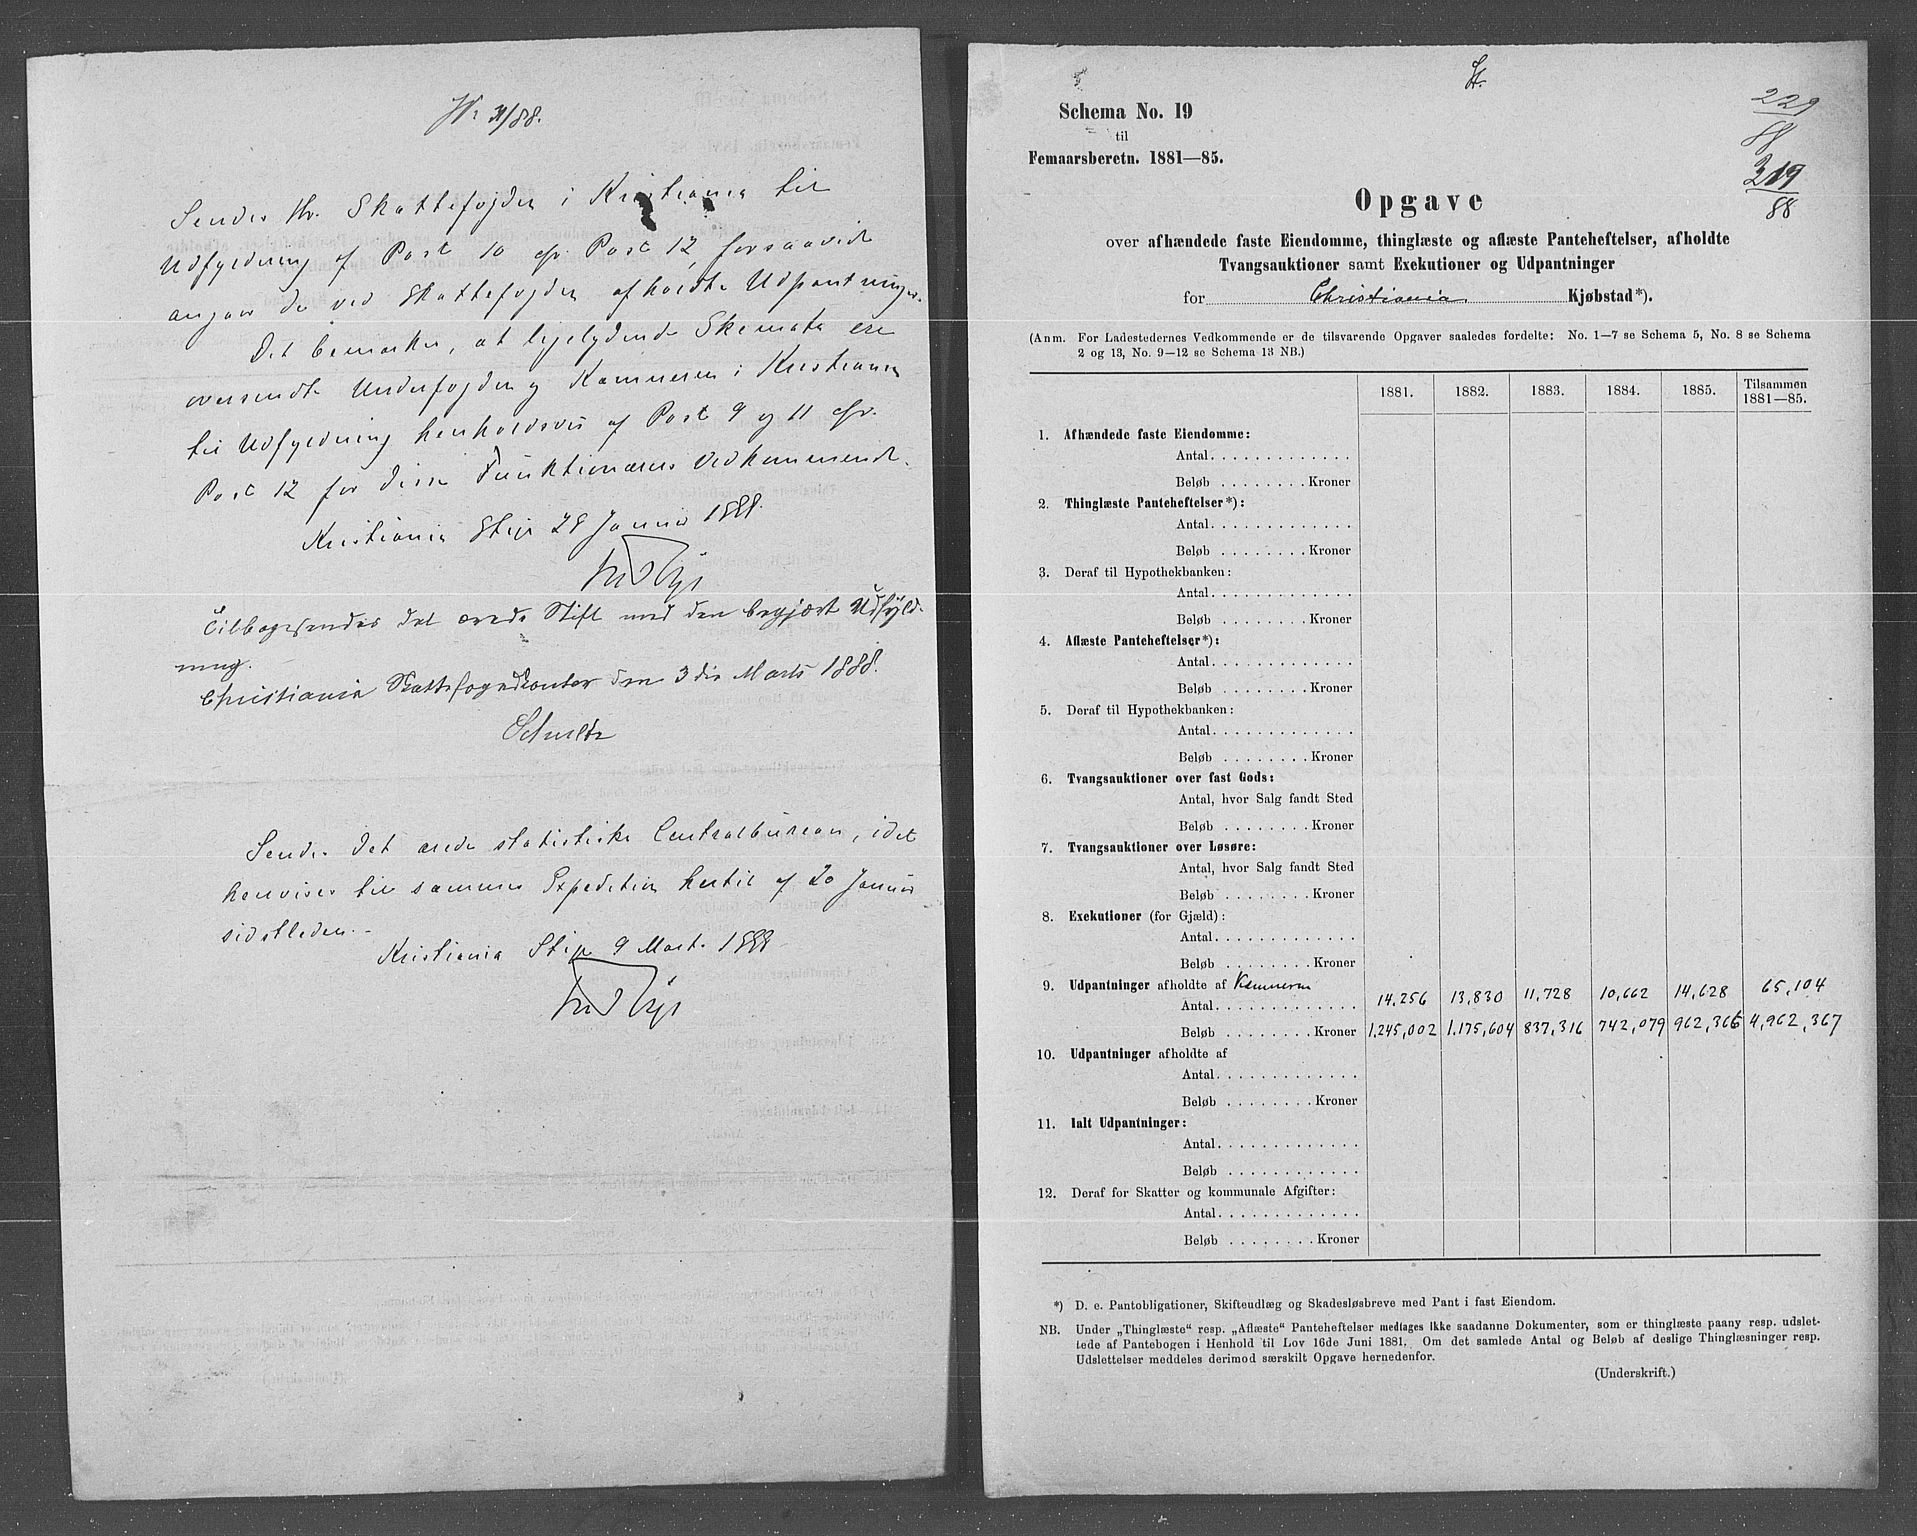 Sendes Hr. Skattefogden i Kristiania til
Udfyldning af Post 10 cfr. Post 12, forsaavidt
angaar de ved Skattefogden afholdte Udpantninger.
Det bemærkes, at ligelydende Skemata ere
oversendte Underfogden og Kæmneren i Kristiania
til Udfyldning henholdsvis af Post 9 og 11 cfr.
Post 12 for disse Funktionærers Vedkommende.
Kristiania Stift 28 Januar 1888.
Tilbagesendes det ærede Stift med den begjærte Udfyld-
ning.
Christiania Skattefogedkontor den 3die Marts 1888.
Sendes det ærede statistiske Centralbureau, idet
henvises til sammes Expedition hertil af 20 Januar
sidstleden.
Kristiania Stift 9 Marts 1888
Schema No. 19
til
Femaarsberetn. 1881—85.
229
88
319
88
Opgave
over afhændede faste Eiendomme, thinglæste og aflæste Panteheftelser, afholdte
Tvangsauktioner samt Exekutioner og Udpantninger
for Christiania Kjøbstad*).
(Anm. For Ladestedernes Vedkommende er de tilsvarende Opgaver saaledes fordelte: No. 1—7 se Schema 5, No. 8 se Schema
2 og 13, No. 9—12 se Schema 13 NB.)
1881. 1882. 1883. 1884. 1885. Tilsammen 1881—85.
1. Afhændede faste Eiendomme:
Antal. . . . . . . . . . . . .
Beløb . . . . . . . . Kroner
2. Thinglæste Panteheftelser*):
Antal. . . . . . . . . . . . .
Beløb . . . . . . . . Kroner
3. Deraf til Hypothekbanken:
Antal. . . . . . . . . . . . .
Beløb . . . . . . . . Kroner
4. Aflæste Panteheftelser*):
Antal. . . . . . . . . . . . .
Beløb . . . . . . . . Kroner
5. Deraf til Hypothekbanken:
Antal. . . . . . . . . . . . .
Beløb . . . . . . . . Kroner
6. Tvangsauktioner over fast Gods:
Antal, hvor Salg fandt Sted
Beløb . . . . . . . . Kroner
7. Tvangsauktioner over Løsøre:
Antal, hvor Salg fandt Sted
Beløb . . . . . . . . Kroner
8. Exekutioner (for Gjæld):
Antal. . . . . . . . . . . . .
Beløb . . . . . . . . Kroner
9. Udpantninger afholdte af Kemneren
Antal. . . . . . . . . . . . . 14.256 13,830 11,728 10,662 14,628 65,104
Beløb . . . . . . . . Kroner 1,245,002 1.175,604 837,316 742,079 962,366 4,962,367
10. Udpantninger afholdte af
Antal. . . . . . . . . . . . .
Beløb . . . . . . . . Kroner
11. Ialt Udpantninger:
Antal. . . . . . . . . . . . .
Beløb . . . . . . . . . . . .
12. Deraf for Skatter og kommunale Afgifter:
Antal. . . . . . . . . . . . .
Beløb . . . . . . . . Kroner
*) D. e. Pantobligationer, Skifteudlæg og Skadesløsbreve med Pant i fast Eiendom.
NB. Under „Thinglæste“ resp. „Aflæste“ Panteheftelser medtages ikke saadanne Dokumenter, som er thinglæste paany resp. udslet-
tede af Pantebogen i Henhold til Lov 16de Juni 1881. Om det samlede Antal og Beløb af deslige Thinglæsninger resp.
Udslettelser meddeles derimod særskilt Opgave hernedenfor.
(Underskrift.)